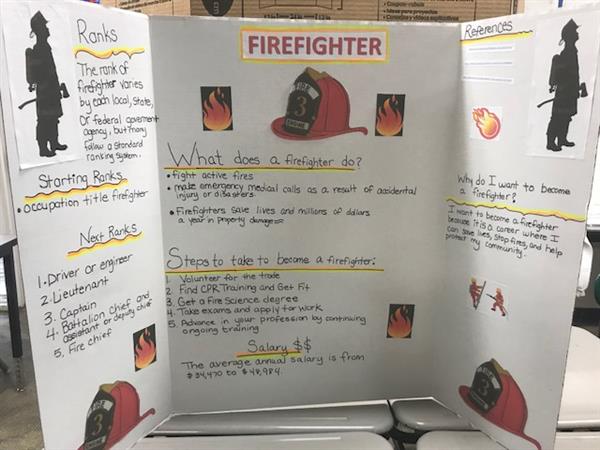 Ranks
The rank of
firefighter varies
by each local, State,
Or federal goverment
agency, but many
follow a standard
ranking system.
Starting Ranks
• occupation title firefighter
Next Ranks
1. Driver or engineer
2. Lieutenant
3. Captain
4. Battalion Chief and
assistant or deputy chief
5. Fire chief
FIREFIGHTER
FIRE
3
ENGINE
What does a firefighter do?
• fight active fires
• make emergency medical calls as a result of accidental
injury or disasters.
• Firefighters save lives and millions of dollars
a year in property damages
Steps to take to become a firefighter:
1. Volunteer for the trade
2. Find CPR Training and Get Fit
3. Get a Fire Science degree
4. Take exams and apply for work
5. Advance in your profession by continuing
ongoing training
Salary $$
The average annual salary is from
$34,470 to $48,984.
References
Why do I want to become
a firefighter?
I want to become a firefighter
because it is a career where I
can save lives, stop fires, and help
protect my community.
FIRE
3
ENGINE
3